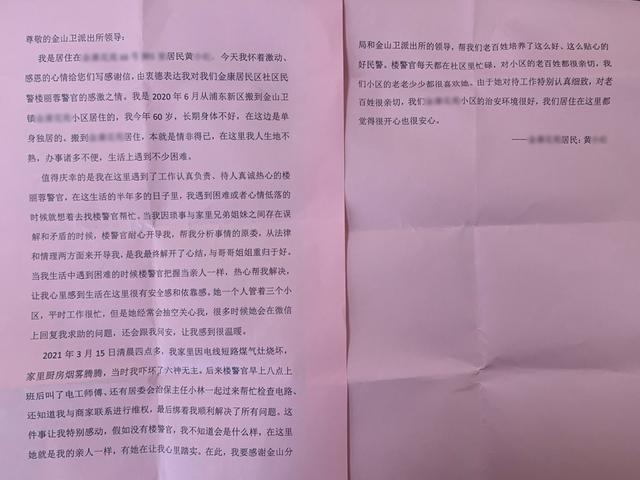 尊敬的金山卫派出所领导：
我是居住在 居民黄 今天我怀着激动、
感恩的心情给您们写感谢信，由衷德表达我对我们金康居民区社区民
警楼丽蓉警官的感激之情。我是 2020 年 6 月从浦东新区搬到金山卫
镇 小区居住的，我今年 60 岁，长期身体不好，在这边是单
身独居的。搬到 居住，本就是情非得已，在这里我人生地不
熟，办事诸多不便，生活上遇到不少困难。
值得庆幸的是我在这里遇到了工作认真负责、待人真诚热心的楼
丽蓉警官，在这生活的半年多的日子里，我遇到困难或者心情低落的
时候就想着去找楼警官帮忙。当我因琐事与家里兄弟姐妹之间存在误
解和矛盾的时候，楼警官耐心开导我，帮我分析事情的原委，从法律
和情理两方面来开导我，是我最终解开了心结，与哥哥姐姐重归于好。
当我生活中遇到困难的时候楼警官把握当亲人一样，热心帮我解决，
让我心里感到生活在这里很有安全感和依靠感。她一个人管着三个小
区，平时工作很忙，但是她经常会抽空关心我，很多时候她会在微信
上回复我求助的问题，还会跟我问安，让我感到很温暖。
2021 年 3 月 15 日清晨四点多，我家里因电线短路煤气灶烧坏，
家里厨房烟雾腾腾，当时我吓坏了六神无主。后来楼警官早上八点上
班后叫了电工师傅、还有居委会治保主任小林一起过来帮忙检查电路、
还知道我与商家联系进行维权，最后绑着我顺利解决了所有问题。这
件事让我特别感动，假如没有楼警官，我不知道会是什么样，在这里
她就是我的亲人一样，有她在让我心里踏实。在此，我要感谢金山分
局和金山卫派出所的领导，帮我们老百姓培养了这么好、这么贴心的
好民警。楼警官每天都在社区里忙碌，对小区的老百姓都很亲切，我
们小区的老老少少都很喜欢她。由于她对待工作特别认真细致，对老
百姓很亲切，我们 小区的治安环境很好，我们居住在这里都
觉得很开心也很安心。
—— 居民：黄